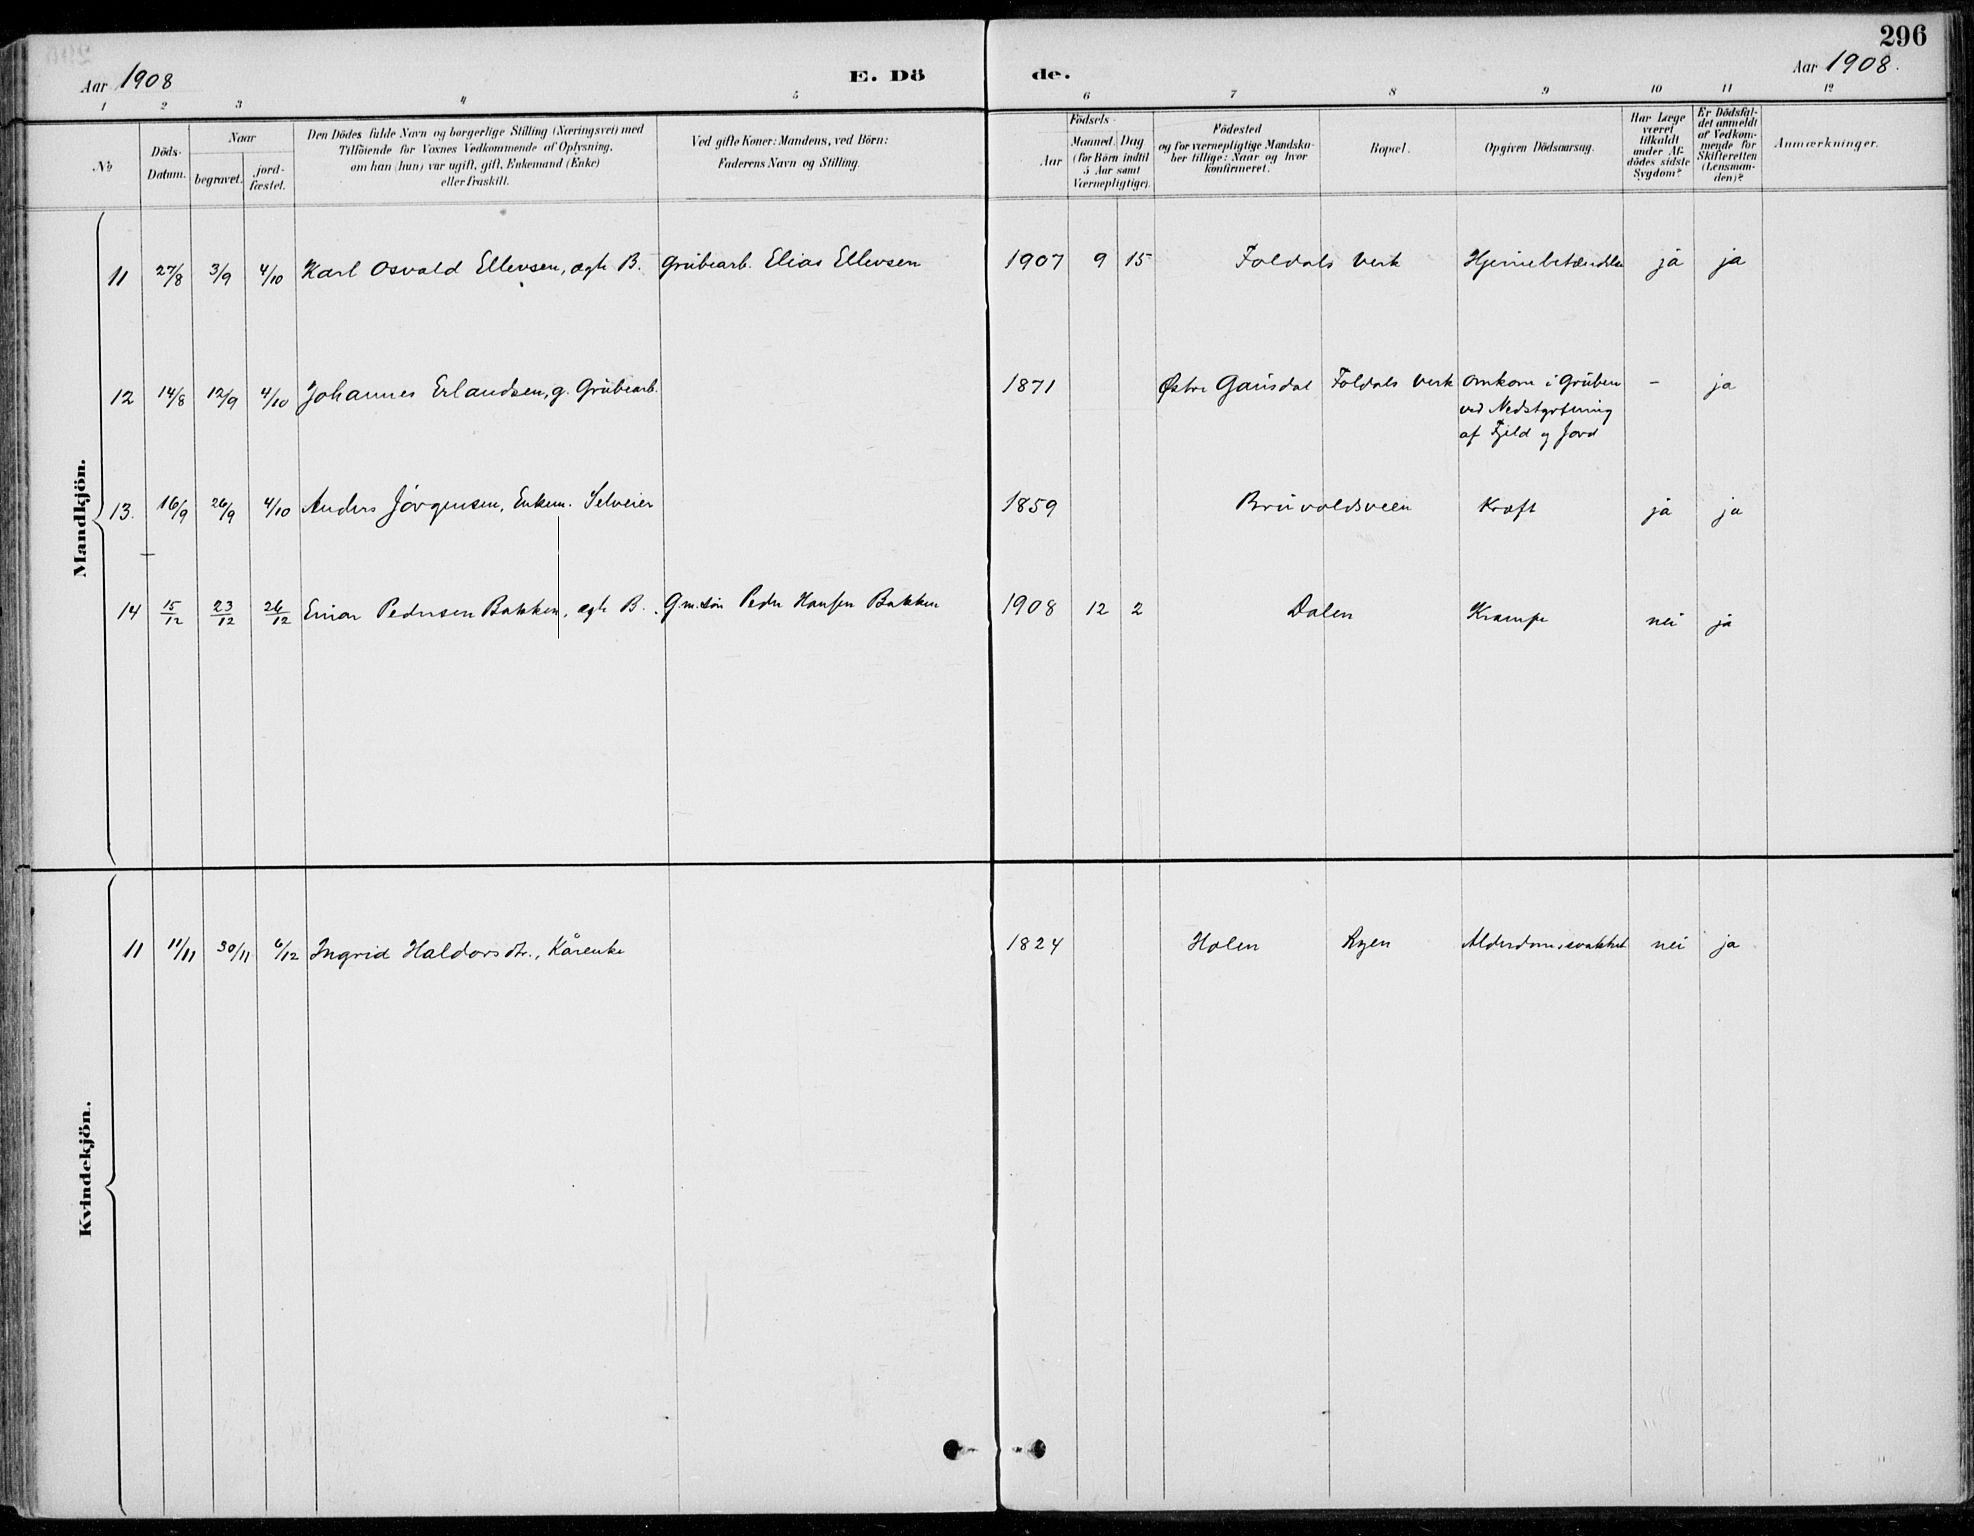 296
Aar 1908
E. Dö
de.
Aar 1908.
1 2 3 4 5 6 7 8 9 10 11 12
No
Döds-
Datum.
Naar
begravet.
jord-
fæstet.
Den Dödes fulde Navn og borgerlige Stilling (Næringsvei) med
Tilföiende for Voxnes Vedkommende af Oplysning,
om han (hun) var ugift, gift, Enkemand (Enke)
eller fraskilt.
Ved gifte Koner: Mandens, ved Börn:
Faderens Navn og Stilling.
Födsels-
Aar
Maaned Dag
(for Börn indtil
5 Aar samt
Værnepligtige).
Födested
og for værnepligtige Mandska-
ber tillige: Naar og hvor
konfirmeret.
Bopæl.
Opgiven Dödsaarsag.
Har Læge
været
tilkaldt
under Af-
dödes sidste
Sygdom?
Er Dödsfal-
det anmeldt
af Vedkom-
mende for
Skifteretten
(Lensman-
den)?
Anmærkninger.
Mandkjön.
11 27/8 3/9 4/10 Karl Osvald Ellevsen, ægte B. Grubearb. Elias Ellevsen 1907 9 15 Foldals Verk Hjernebetændelse ja ja
12 14/8 12/9 4/10 Johannes Erlandsen, g. Grubearb. 1871 Østre Gausdal Foldals Verk Omkom i Gruben - ja
ved Nedstyrtning
af Fjeld og Jord
13. 16/9 26/9 4/10 Anders Jörgensen, Enkem. Selveier 1859 Bruvoldsveen Kræft ja ja
14 15/12 23/12 26/12 Einar Pedersen Bakken, ægte B. G.m.søn Peder Hansen Bakken 1908 12 2 Dalen Krampe nei ja
Kvindekjön.
11 11/11 30/11 6/12 Ingrid Haldorsdtr., Kårenke 1824 Holen Ryen Alderdomssvakhet nei ja